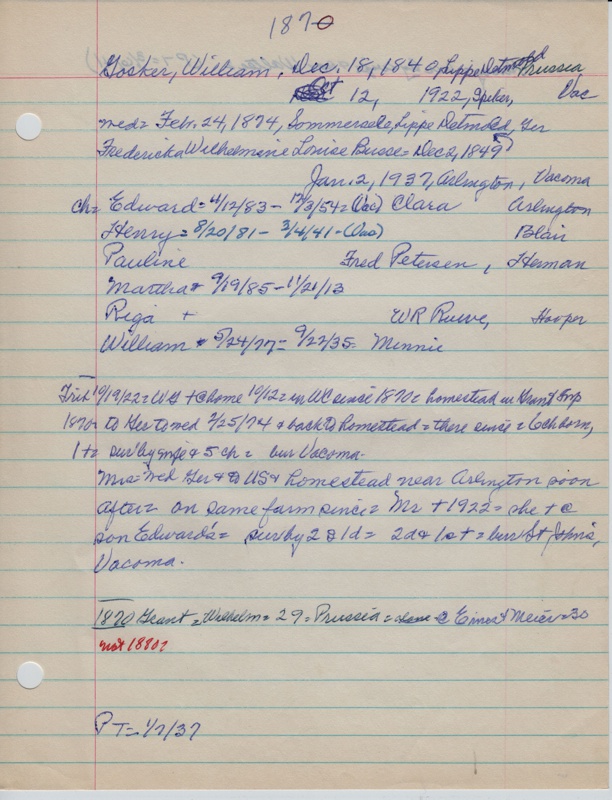 1870
Gosker, William, Dec. 18, 1840, Lippe Detmold Prussia
Oct 12, 1922, Spiker, Vac
med= Feb. 24, 1874, Sommersele, Lippe Detmold, Ger
Fredericka Wilhelmine Louise Busse= Dec 2, 1849
Jan. 2, 1937, Arlington, Vacoma
ch= Edward= 4/12/83 - 12/3/54= (Vac) Clara Arlington
Henry= 8/20/81 - 3/4/41 - (Vac) Blair
Pauline Fred Petersen, Herman
Martha + 9/19/85 - 11/21/13
Riga + WR Ruwe, Hooper
William + 5/24/77= 9/22/35= Minnie
Trib 10/19/22= WG + @ home 10/12= in WC since 1870= homestead in Grant Tmp
1870= to Ger to med 2/25/74 & back to homestead= there since= 6 ch born,
1+= sur' by & 5 ch= bur Vacoma.
Mrs= med Ger & to US & homestead near Arlington soon
after= on same farm since= Mr + 1922= she + @
son Edward's= sur by 2 s 1 d= 2d & 1 s += bur St John's,
Vacoma.
1870 Grant= Wilhelm= 29= Prussia= @ Ernest Meier=30
not 1880?
PT= 1/7/37